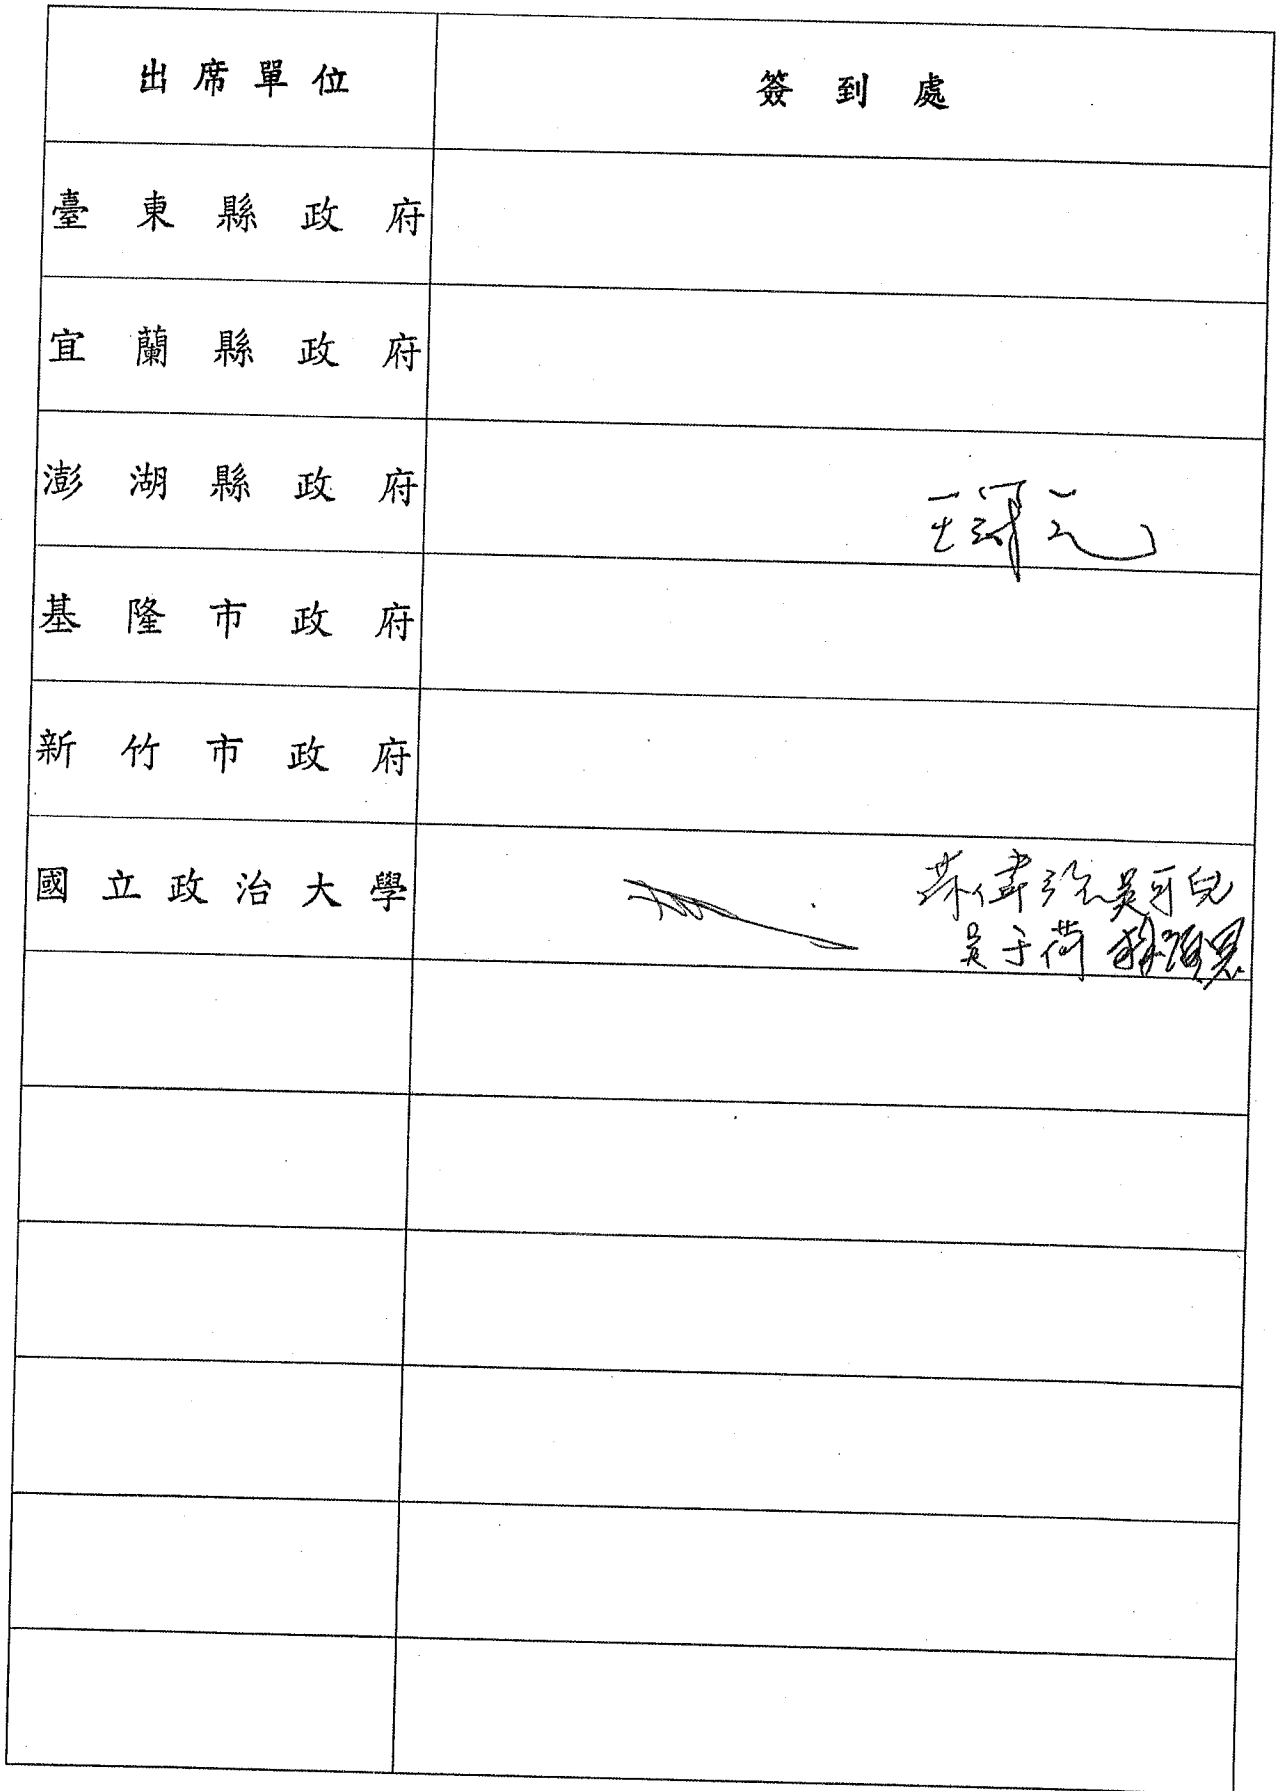 出席單位 簽到處
臺東縣政府
宜蘭縣政府
澎湖縣政府 王冠元
基隆市政府
新竹市政府
國立政治大學 吳可兒
吳于荷